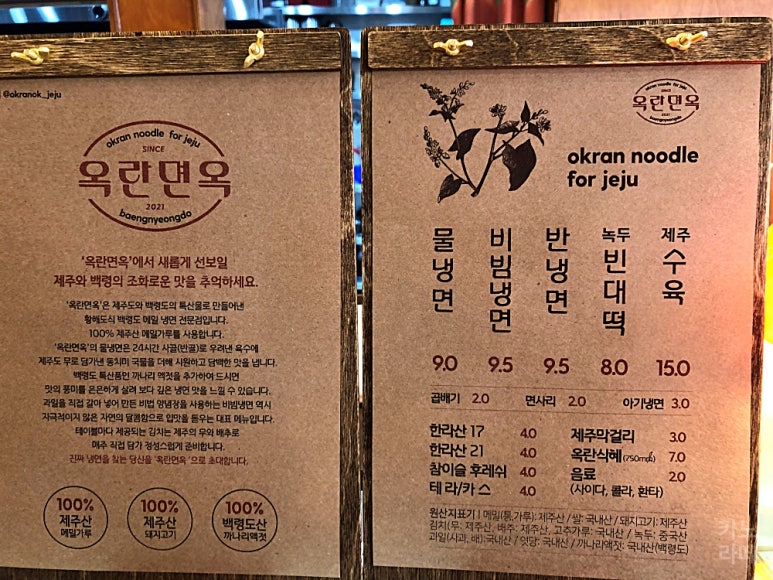 @okranok_jeju
okran noodle for jeju
SINCE
옥란면옥
2021
baengnyeongdo
'옥란면옥'에서 새롭게 선보일
제주와 백령의 조화로운 맛을 추억하세요.
'옥란면옥'은 제주도와 백령도의 특산물로 만들어낸
황해도식 백령도 메밀 냉면 전문점입니다.
100% 제주산 메밀가루를 사용합니다.
'옥란면옥'의 물냉면은 24시간 사골(반골)로 우려낸 육수에
제주도 무로 담가낸 동치미 국물을 더해 시원하고 담백한 맛을 냅니다.
백령도 특산품인 까나리 액젓을 추가하여 드시면
맛의 풍미를 은은하게 살려 보다 깊은 냉면 맛을 느낄 수 있습니다.
과일을 직접 갈아 넣어 만든 비법 양념장을 사용하는 비빔냉면 역시
자극적이지 않은 자연의 달콤함으로 입맛을 돋우는 대표 메뉴입니다.
테이블마다 제공되는 김치는 제주의 무와 배추로
매주 직접 담가 정성스럽게 준비합니다.
진짜 냉면을 찾는 당신을 '옥란면옥'으로 초대합니다.
100%
제주산
메밀가루
100%
제주산
돼지고기
100%
백령도산
까나리액젓
okran noodle for jeju
SINCE
옥란면옥
2021
baengnyeongdo
okran noodle
for jeju
물냉면 9.0
비빔냉면 9.5
반냉면 9.5
녹두 빈대떡 8.0
제주 수육 15.0
곱배기 2.0 면사리 2.0 아기냉면 3.0
한라산 17 4.0
한라산 21 4.0
참이슬 후레쉬 4.0
테라/카스 4.0
제주막걸리 3.0
옥란식혜(750mℓ) 7.0
음료 2.0
(사이다, 콜라, 환타)
원산지표기 | 메밀(통,가루): 제주산 / 쌀: 국내산 / 돼지고기: 제주산
김치(무: 제주산, 배추: 제주산, 고추가루: 국내산 / 녹두: 중국산
과일(사과, 배):국내산 / 엿당: 국내산 / 까나리액젓: 국내산(백령도)